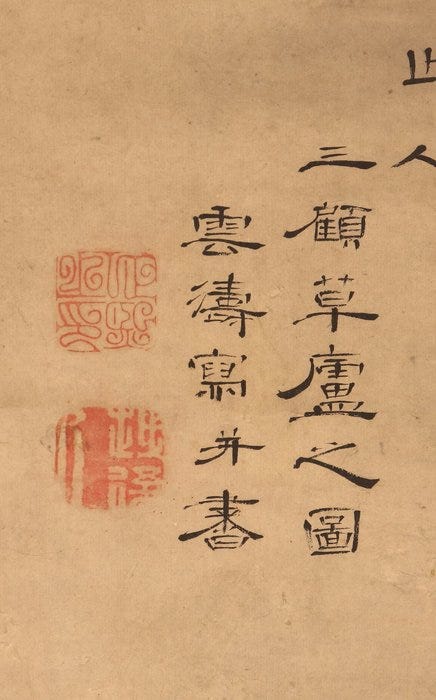 人
三顧草廬之圖
雲濤寫并書